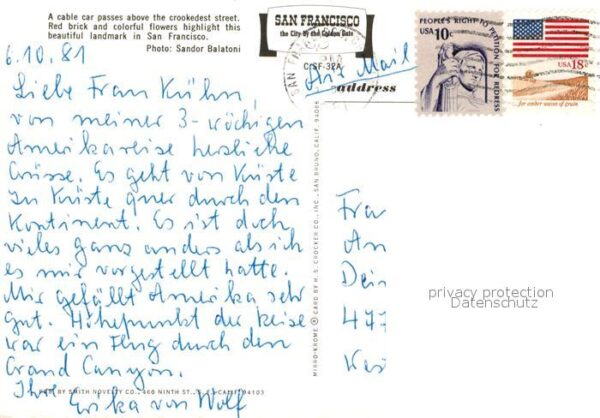 A cable car passes above the crookedest street.
Red brick and colorful flowers highlight this
beautiful landmark in San Francisco.
Photo: Sandor Balatoni
6.10.81
Liebe Frau Kühn,
von meiner 3-wöchigen
Amerikareise herzliche
Grüsse. Es geht von Küste
zu Küste quer durch den
Kontinent. Es ist doch
vieles ganz anders als ich
es mir vorgestellt hatte.
Mir gefällt Amerika sehr
gut. Höhepunkt der Reise
war ein Flug durch den
Grand Canyon.
Ihre Erika von Wolf
SMITH NOVELTY CO., 460 NINTH ST., S. F., CALIF. 94103
MIRRO-KROME ® CARD BY H. S. CROCKER CO., INC., SAN BRUNO, CALIF. 94066
SAN FRANCISCO
the City by the Golden Gate
C-SF-32A
Air Mail
address
PEOPLE'S RIGHT TO PETITION FOR REDRESS
USA 10c
USA 18c
for amber waves of grain
Frau
An
477
privacy protection
Datenschutz